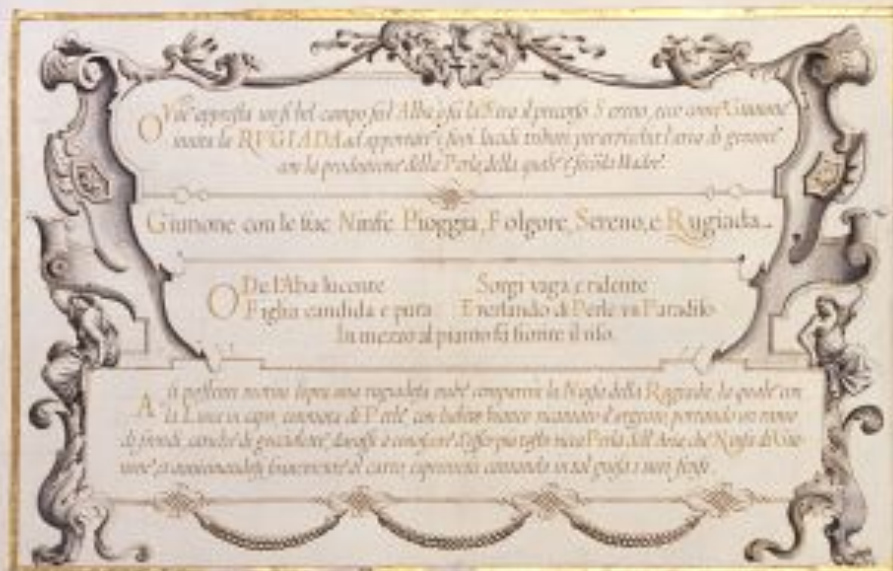 Ove appresta un si bel campo fra l'Alba o fa la Sera il precorso Sereno, ecco come Giunone
invita la RVGIADA ad apportare i suoi lucidi tributi per arricchir l'area di gemme
con la produzione della Perla, della quale è feconda Madre.
Giunone con le sue Ninfe Pioggia, Folgore, Sereno, e Rugiada.
O De l'Alba lucente Sorgi vaga e ridente
Figlia candida e pura E verlando di Perle vn Paradiso
In mezzo al pianto fà fiorire il riso.
A si possente motivo sopra una rugiadosa nube comparirà la Ninfa della Rugiada, la quale con
la Luna in capo, coronata di Perle, con habito bianco ricamato d'argento, portando un ramo
di frondi, cariche di gocciolette, darassi a conoscere d'esser più tosto ricca Perla dell'Aria che Ninfa di Giu-
none, et avvicinandosi soavemente al carro, esprimerà cantando in tal guisa i suoi sensi.